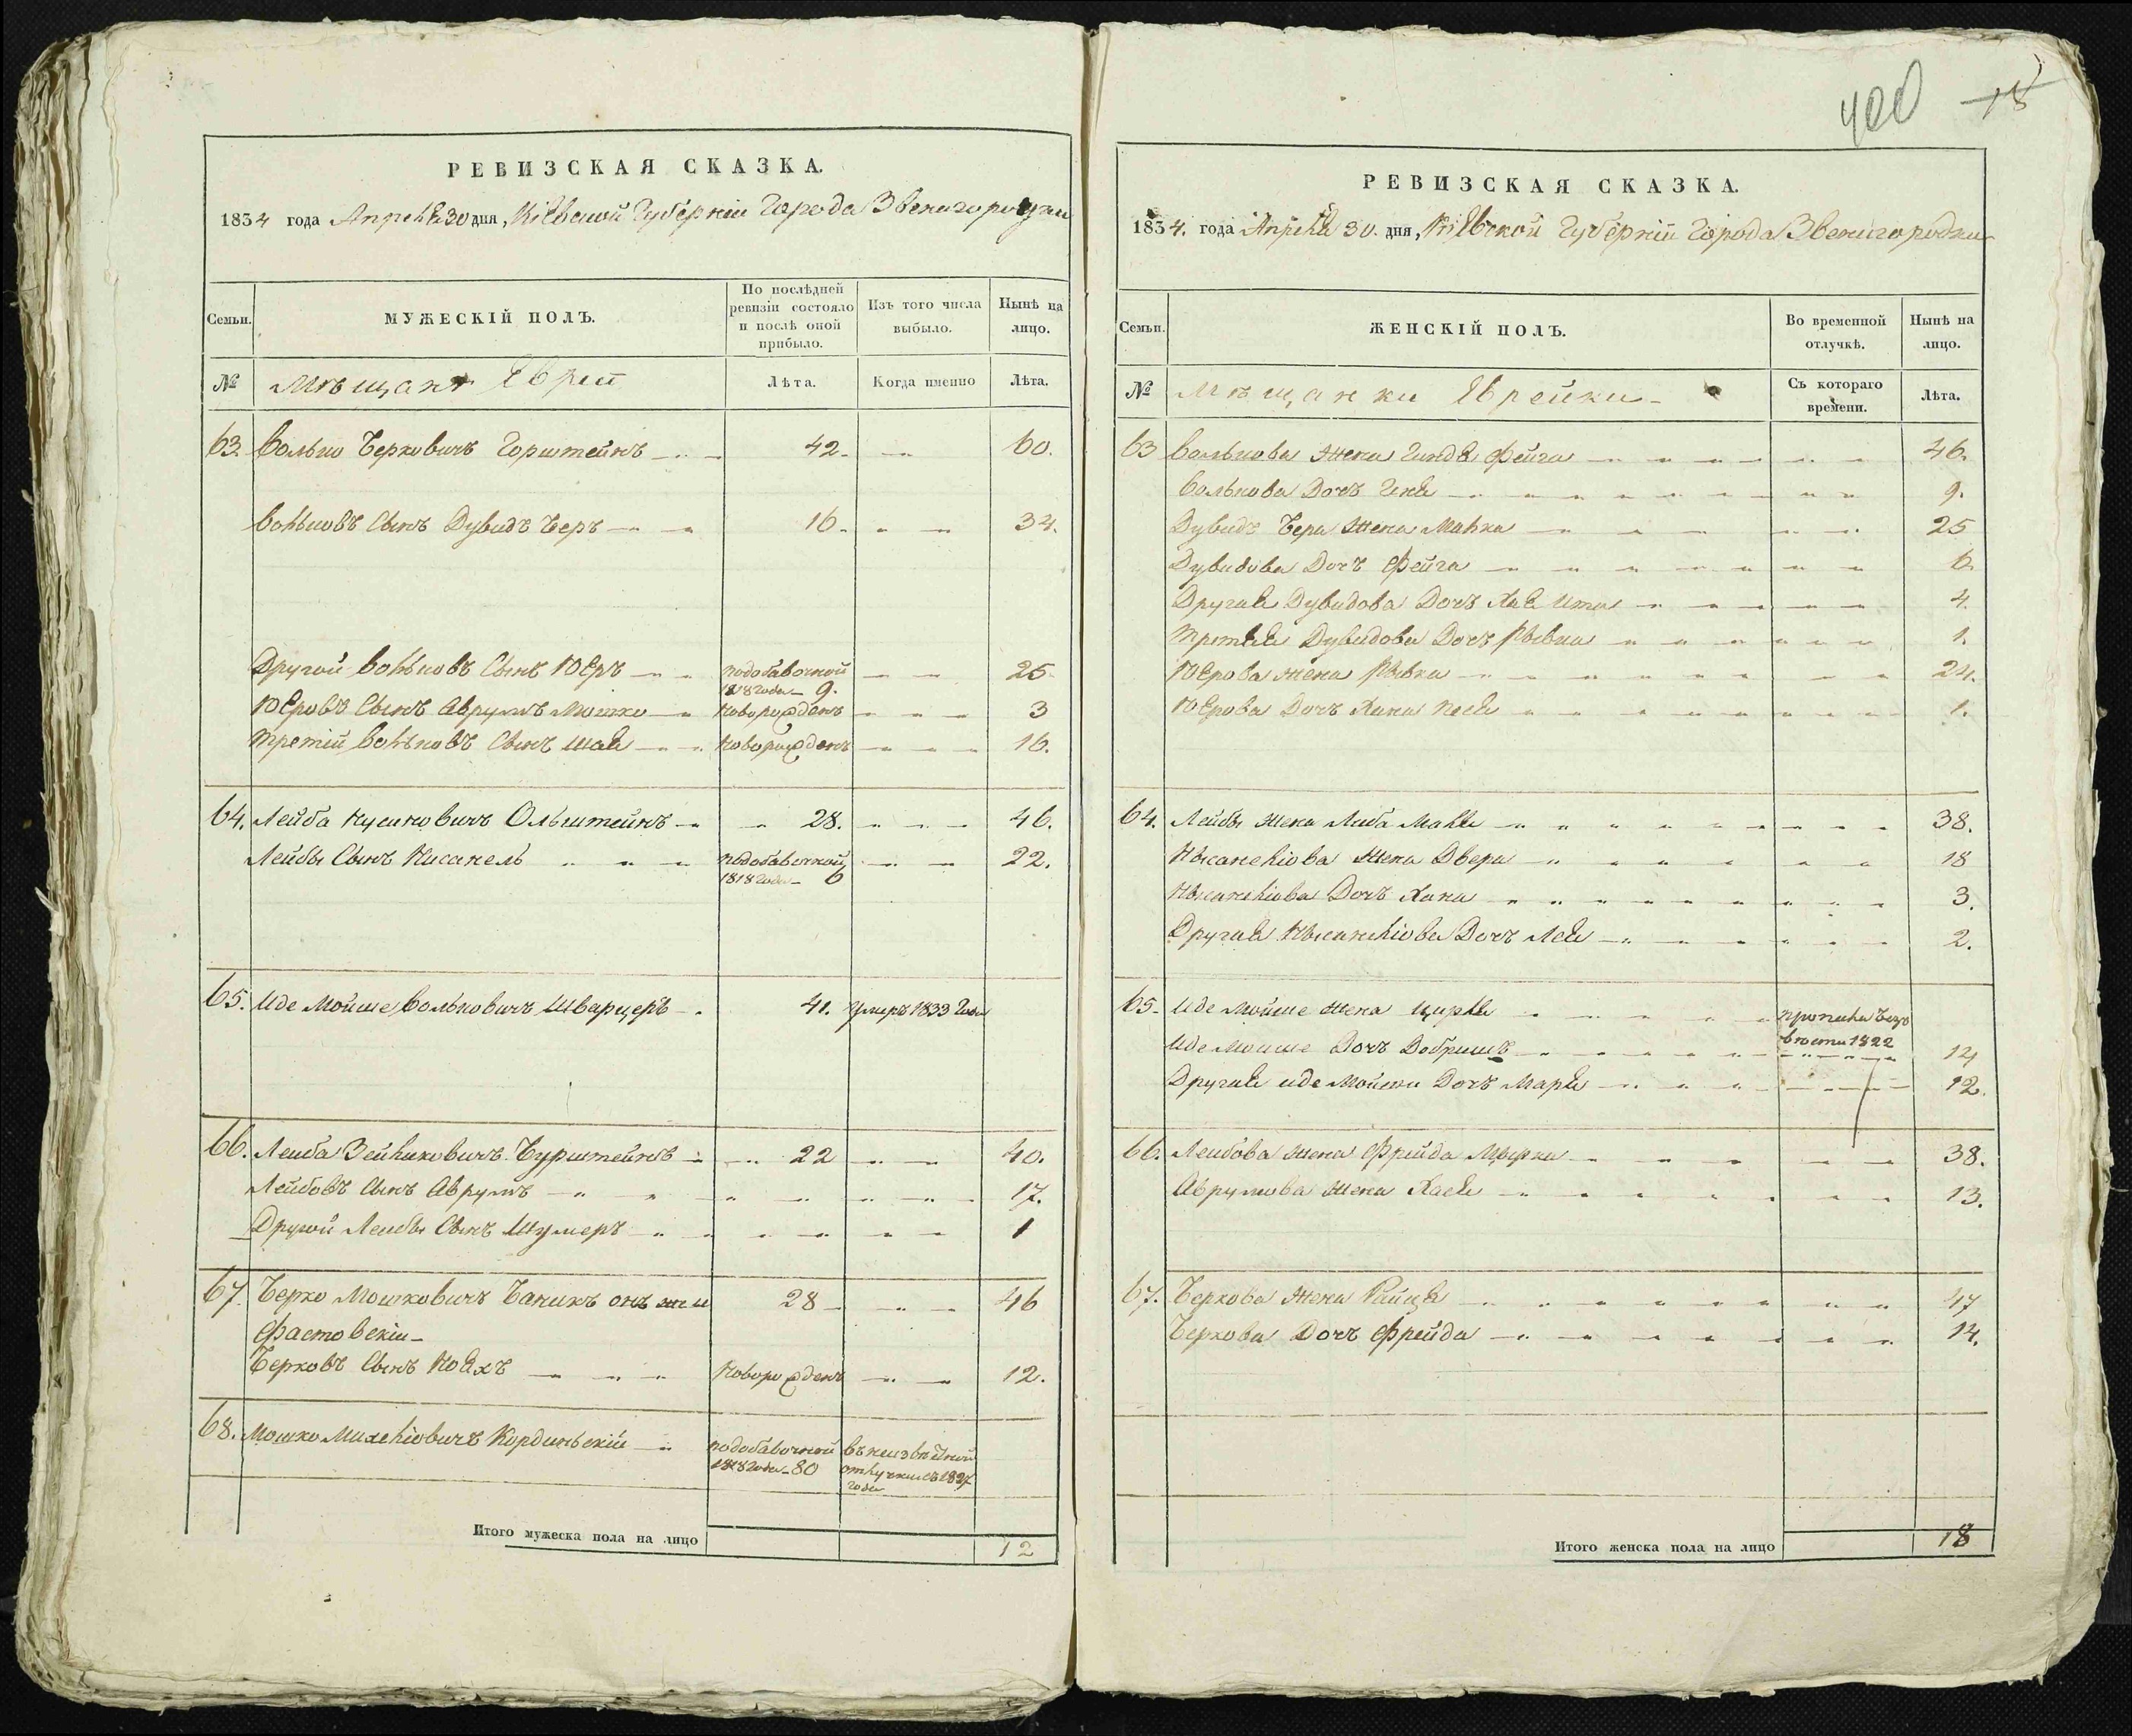 400 18
РЕВИЗСКАЯ СКАЗКА.
1834 года Апреля 30 дня, Кіевской Губерніи Города Звенигородки
Семьи. МУЖЕСКІЙ ПОЛЪ. По послѣдней ревизіи состояло и послѣ оной прибыло. Изъ того числа выбыло. Нынѣ на лицо.
№ Мѣщанъ Еврей Лѣта. Когда именно Лѣта.
63. Волько Берковичъ Горштейнъ 42. 60.
Вольковъ Сынъ Дувидъ Беръ 16. 34.
Другой Вольковъ Сынъ Юеръ подобавочной 1818 года 9. 25
Юеровъ Сынъ Аврумъ Мошко новорожденъ 3
Третій Вольковъ Сынъ Шая новорожденъ 16.
64. Лейба Нусиновичъ Ольштейнъ 28. 46.
Лейбы Сынъ Нисанель подобавочной 1818 года 6 22.
65. Иде Мойше Вольковичъ Шварцеръ 41. умеръ 1833 года
66. Лейба Зейликовичъ Бурштейнъ 22 40.
Лейбовъ Сынъ Аврумъ 17.
Другой Лейбы Сынъ Шумеръ 1
67. Берко Мошковичъ Баникъ онъ же и 28 46
Фастовскіи
Берковъ Сынъ Ноахъ новорожденъ 12.
68. Мошко Михеліовичъ Кординскій подобавочной 1818 года 80 въ неизвѣстной отлучки съ 1827 года
Итого мужеска пола на лицо 12
РЕВИЗСКАЯ СКАЗКА.
1834. года Апреля 30. дня, Кіевской Губерніи Города Звенигородки
Семьи. ЖЕНСКІЙ ПОЛЪ. Во временной отлучкѣ. Нынѣ на лицо.
№ Мѣщанки Еврейки Съ котораго времени. Лѣта.
63 Волькова Жена Гинда Фейга 46.
Волькова Дочъ Геня 9.
Дувидъ Бера Жена Малка 25
Дувидова Дочъ Фейга 6.
Другая Дувидова Дочъ Хая Ита 4.
Третья Дувидова Дочъ Рывка 1.
Юерова Жена Рывка 24.
Юерова Дочъ Хана Песя 1.
64. Лейбы Жена Либа Маля 38.
Нысанеліова Жена Двера 18
Нысанеліова Дочъ Хана 3.
Другая Нысанеліова Дочъ Лея 2.
65. Иде Мойше Жена Цирля пропала безъ вѣсти 1822
Иде Мойше Дочъ Добришъ 14
Другая Иде Мойши Дочъ Маря 12.
66. Лейбова Жена Фрейда 38.
Аврумова Жена Хася 13.
67. Беркова Жена Райця 47
Беркова Дочъ Фрейда 14.
Итого женска пола на лицо 18